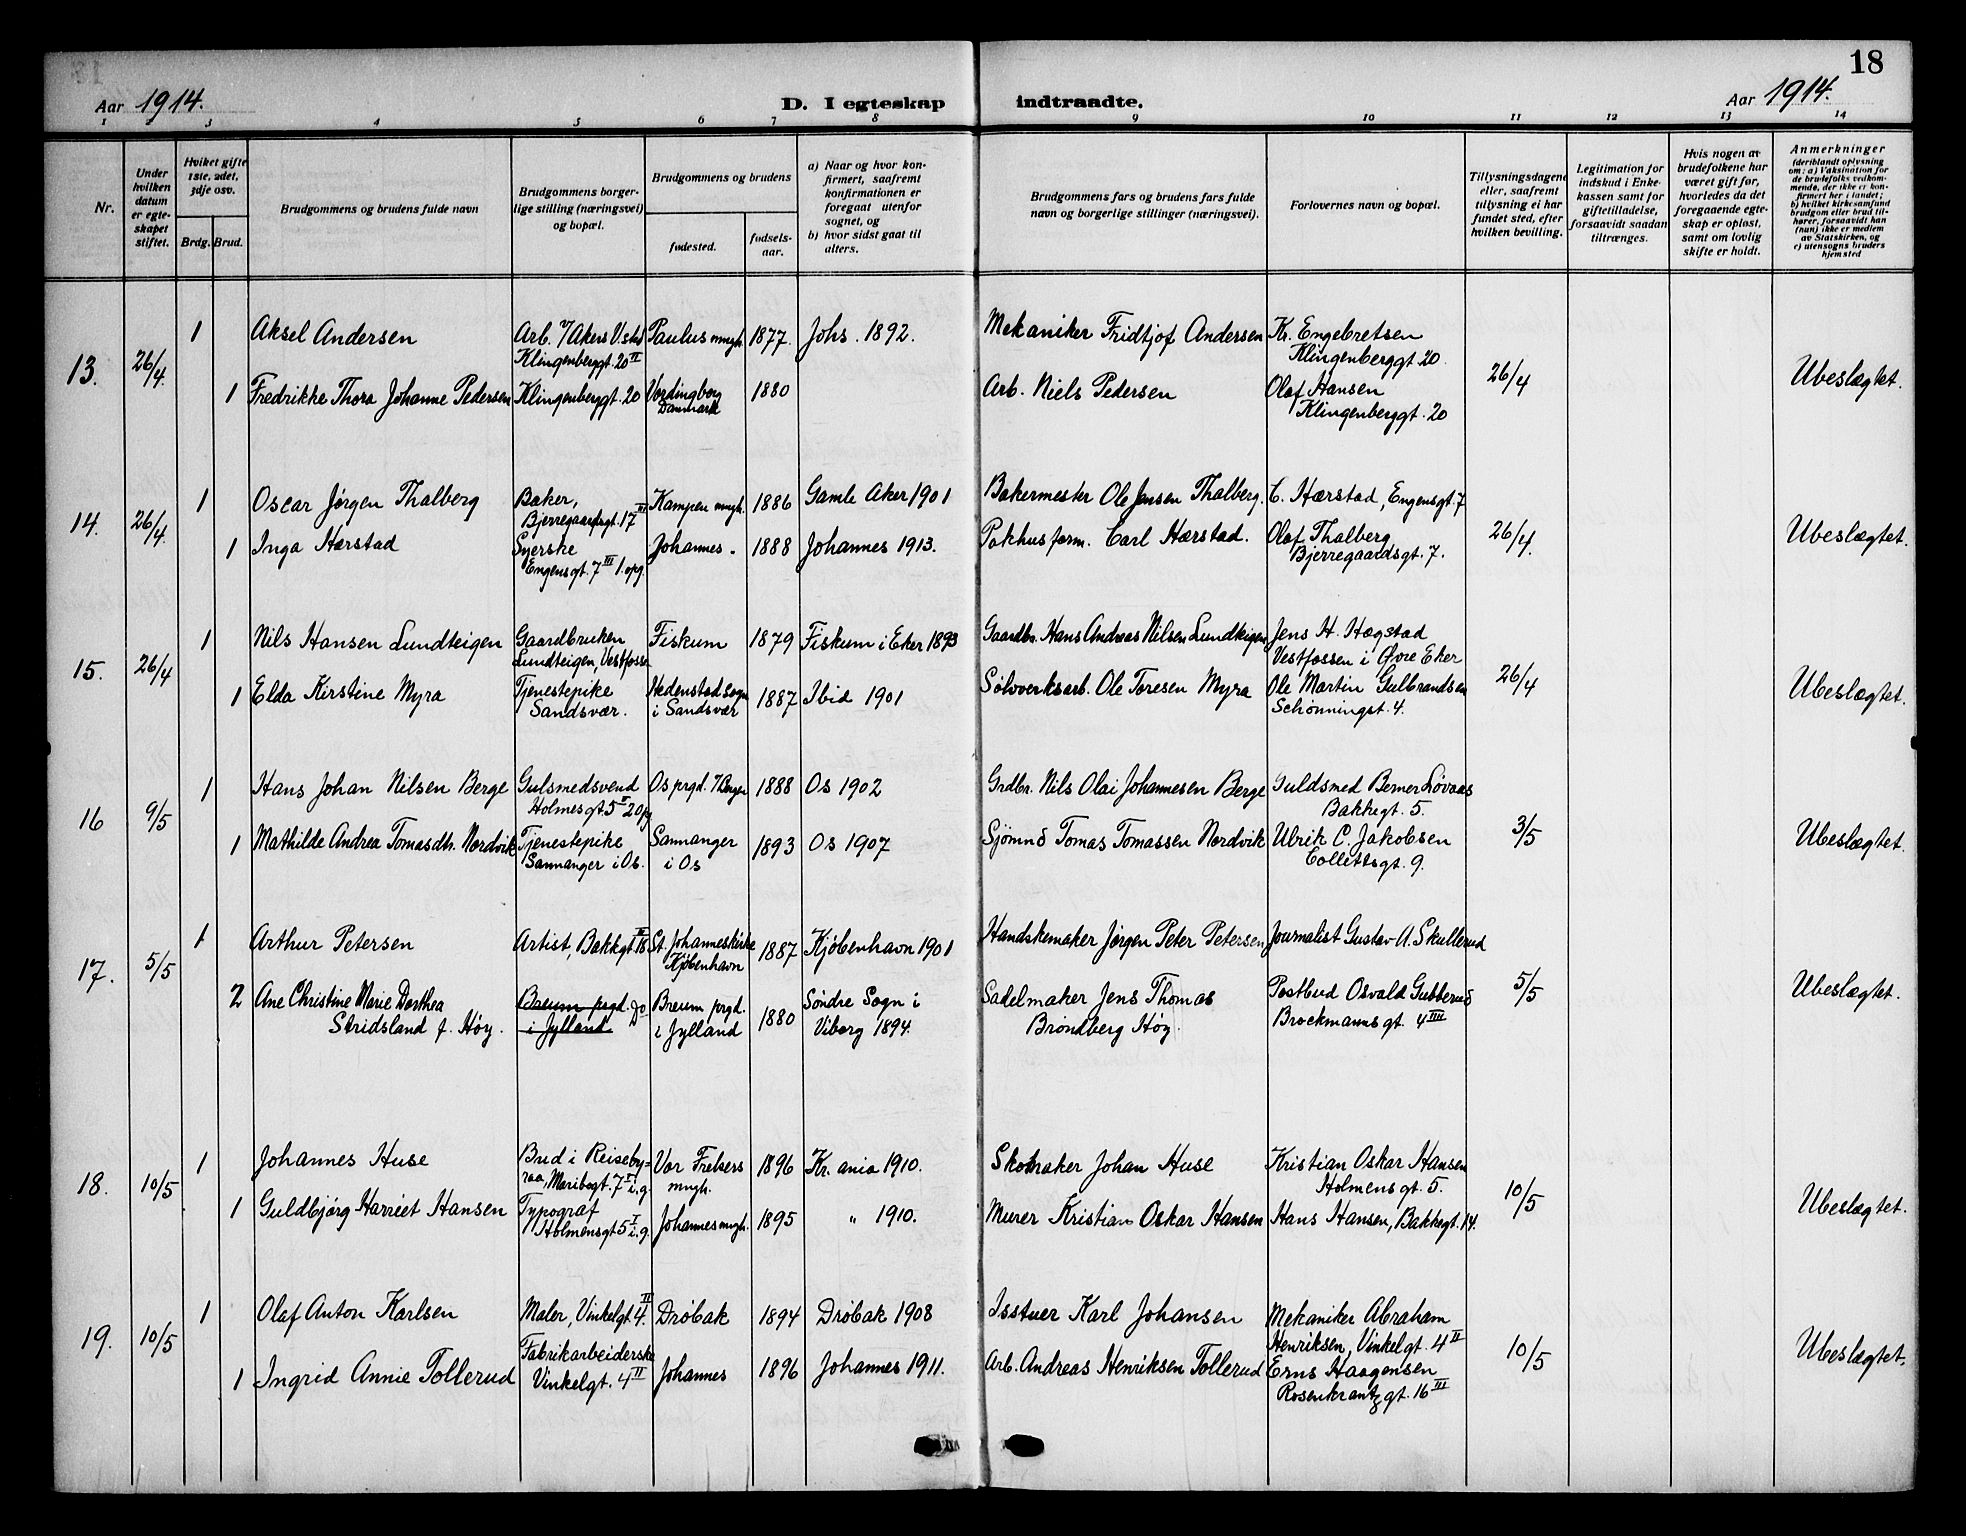 18
Aar 1914. D. I egteskap indtraadte. Aar 1914.
1 2 3 4 5 6 7 8 9 10 11 12 13 14
Nr.
Under hvilken datum er egteskapet stiftet.
Hvilket gifte 1ste, 2det, 3dje osv.
Brdg. Brud.
Brudgommens og brudens fulde navn
Brudgommens borgerlige stilling (næringsvei) og bopæl.
Brudgommens og brudens
fødested.
fødselsaar.
a) Naar og hvor konfirmert, saafremt konfirmationen er foregaat utenfor sognet, og
b) hvor sidst gaat til alters.
Brudgommens fars og brudens fars fulde navn og borgerlige stillinger (næringsvei).
Forlovernes navn og bopæl.
Tillysningsdagene eller, saafremt tillysning ei har fundet sted, efter hvilken bevilling.
Legitimation for indskud i Enkekassen samt for giftetilladelse, forsaavidt saadan tiltrænges.
Hvis nogen av brudefolkene har været gift før, hvorledes da det foregaaende egteskap er opløst, samt om lovlig skifte er holdt.
Anmerkninger (deriblandt oplysning om: a) Vaksination for de brudefolks vedkommende, der ikke er konfirmert her i landet; b) hvilket kirkesamfund brudgom eller brud tilhører, forsaavidt han (hun) ikke er medlem av Statskirken, og c) utensogns bruders hjemsted
13. 26/4. 1 Aksel Andersen Arb. v/ Akers V.sted Klingenberggt. 20 II Paulus mngh. 1877. Johs. 1892. Mekaniker Fridtjof Andersen Kr. Engebretsen Klingenberggt. 20. 26/4 Ubeslægtet.
1 Fredrikke Thora Johanne Pedersen Klingenberggt. 20 Vordingborg Danmark 1880 Arb. Niels Pedersen Olaf Hansen Klingenberggt. 20
14. 26/4. 1 Oscar Jørgen Thalberg Baker, Bjerregaardsgt. 17 III Kampen mngh. 1886 Gamle Aker 1901 Bakermester Ole Jensen Thalberg. C. Hærstad, Engensgt. 7 26/4. Ubeslægtet.
1 Inga Hærstad Syerske Engensgt. 7 III 1. opg. Johannes. 1888 Johannes 1913. Pakhusform. Carl Hærstad. Olaf Thalberg Bjerregaardsgt. 7.
15. 26/4 1 Nils Hansen Lundteigen Gaardbruker Lundteigen, Vestfossen Fiskum 1879 Fiskum i Eker 1893 Gaardbr. Hans Andreas Nilsen Lundteigen Jens H. Hogstad Vestfossen i Øvre Eker 26/4 Ubeslægtet.
1 Elda Kirstine Myra Tjenestepike Sandsvær. Hedenstad sogn i Sandsvær 1887 Ibid 1901 Sølvverksarb. Ole Toresen Myra Ole Martin Gulbrandsen Schønningst. 4.
16 9/5 1 Hans Johan Nilsen Berge Gulsmedsvend Holmesgt. 5 I 2 opg Os prgd. v/ Bergen 1888 Os 1902 Grdbr. Nils Olai Johannesen Berge Guldsmed Berner Løvaas Bakkegt. 5. 3/5 Ubeslægtet.
1 Mathilde Andrea Tomasdtr. Nordvik Tjenestepike Samnanger i Os. Samnanger i Os 1893 Os 1907 Sjømnd Tomas Tomassen Nordvik Ulrik C. Jakobsen Collettsgt. 9.
17. 5/5 1 Arthur Petersen Artist, Bakkegt 18 III St. Johanneskirke Kjøbenhavn 1887 Kjøbenhavn 1901 Handskemaker Jørgen Peter Petersen Journalist Gustav A. Skullerud 5/5 Ubeslægtet.
2 Ane Christine Marie Dorthea Stridsland f. Høy. Breum prgd. i Jylland Do Breum prgd. i Jylland 1880 Søndre Sogn i Viborg 1894. Sadelmaker Jens Thomas Brøndberg Høy. Postbud Osvald Gubberud Brockmannsgt. 4 IIII
18. 10/5 1 Johannes Huse Bud i Reisebyraa, Maribogt. 7 I i. g. Vor Frelsers mngh. 1896 Kr. ania 1910. Skomaker Johan Huse Kristian Oskar Hansen Holmensgt. 5. 10/5 Ubeslægtet.
1 Guldbjørg Harriet Hansen Typograf Holmensgt 5 I i. g. Johannes mngh. 1895 " 1910. Murer Kristian Oskar Hansen Hans Hansen, Bakkegt. 14.
19. 10/5 1 Olaf Anton Karlsen Maler, Vinkelgt 4. II Drøbak 1894 Drøbak 1908 Isstuer Karl Johansen Mekaniker Abraham Henriksen, Vinkelgt. 4 II 10/5 Ubeslægtet.
1 Ingrid Annie Tollerud Fabrikarbeiderske Vinkelgt. 4 II Johannes 1896 Johannes 1911. Arb. Andreas Henriksen Tollerud Erns Haagensen Rosenkrantzgt. 16 III